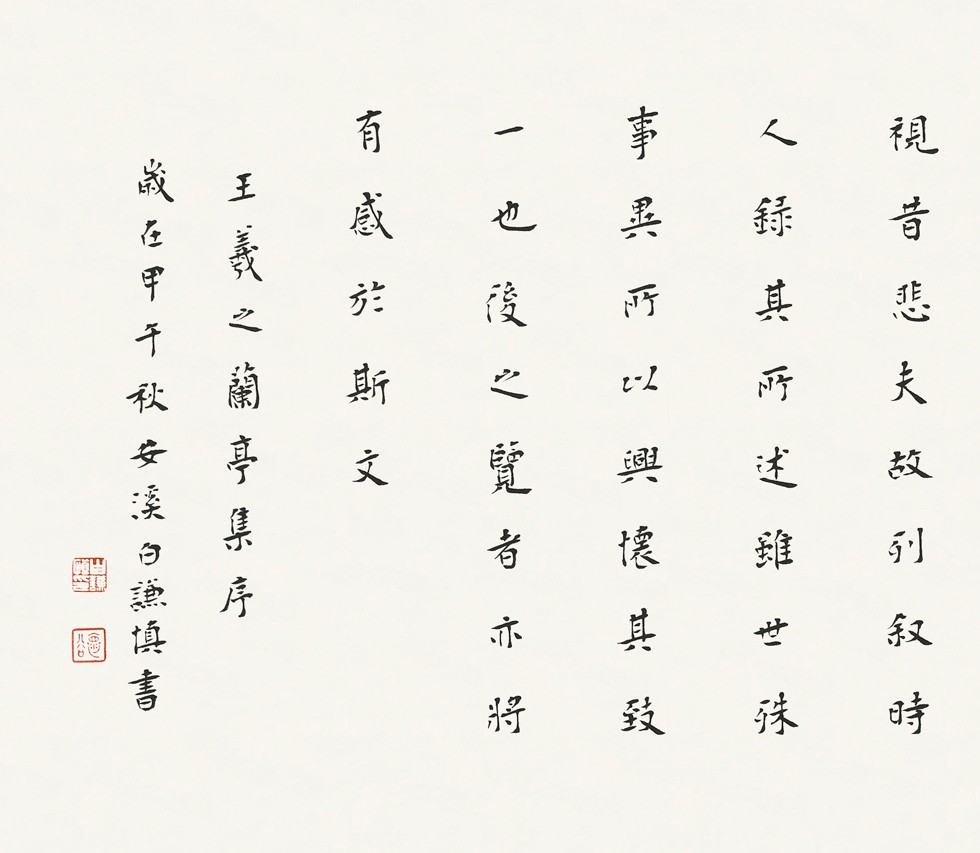 視昔悲夫故列叙時
人録其所述雖世殊
事異所以興懷其致
一也後之覽者亦將
有感於斯文
王羲之蘭亭集序
歲在甲午秋安溪白謙慎書